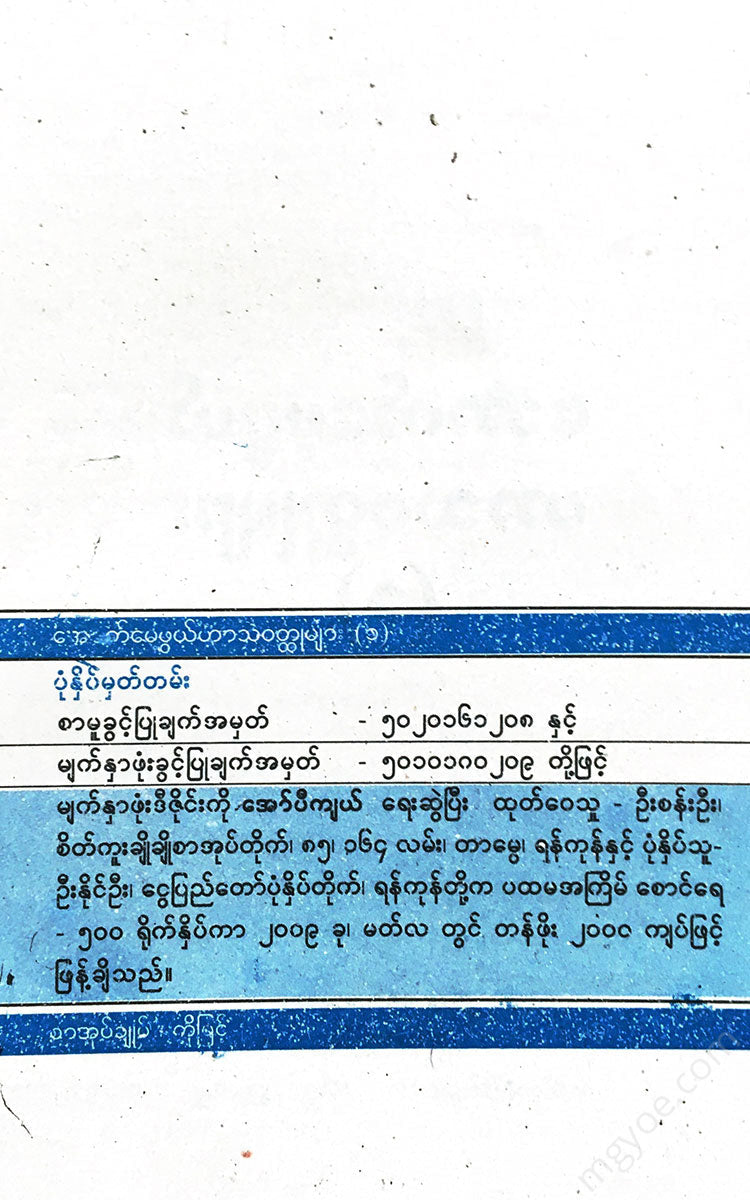 အောက်မေ့ဖွယ်ဟာသဝတ္ထုများ (၁)
ပုံနှိပ်မှတ်တမ်း
စာမူခွင့်ပြုချက်အမှတ် - ၅၀၂၀၁၆၁၂၀၈ နှင့်
မျက်နှာဖုံးခွင့်ပြုချက်အမှတ် - ၅၀၁၀၁၈၀၂၀၉ တို့ဖြင့်
မျက်နှာဖုံးဒီဇိုင်းကို အော်ပီကျယ် ရေးဆွဲပြီး ထုတ်ဝေသူ - ဦးစန်းဦး၊
စိတ်ကူးချိုချိုစာအုပ်တိုက်၊ ၈၅၊ ၁၆၄ လမ်း၊ တာမွေ၊ ရန်ကုန်နှင့် ပုံနှိပ်သူ-
ဦးနိုင်ဦး၊ ငွေပြည်တော်ပုံနှိပ်တိုက်၊ ရန်ကုန်တို့က ပထမအကြိမ် စောင်ရေ
- ၅၀၀ ရိုက်နှိပ်ကာ ၂၀၀၉ ခု၊ မတ်လ တွင် တန်ဖိုး ၂၀၀၀ ကျပ်ဖြင့်
ဖြန့်ချိသည်။
စာအုပ်ချုပ် ကိုမြင့်
mgyoe.com